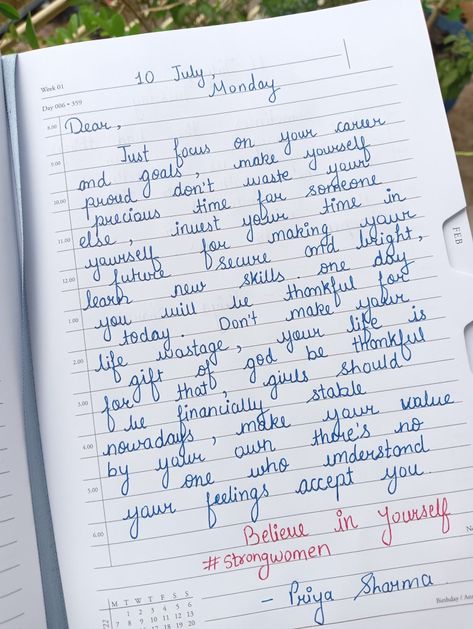 Week 01
10 July,
Monday
Day 006 • 359
8.00
Dear,
9.00
Just focus on your career
and goals, make yourself
10.00
proud don't waste your
precious time for someone
11.00
else, invest your time in
yourself for making your
12.00
future secure and bright,
learn new skills. one day
1.00
you will be thankful for
today. Don't make your
2.00
life wastage, your life is
gift of god be thankful
3.00
for that, girls should
be financially stable
4.00
nowadays, make your value
by your own there's no
5.00
one who understand
your feelings accept you.
6.00
Believe in yourself
#strongwomen
- Priya Sharma
FEB
M T W T F S S
1 2 3 4 5 6
7 8 9 10 11 12 13
18 19 20
Birthday /